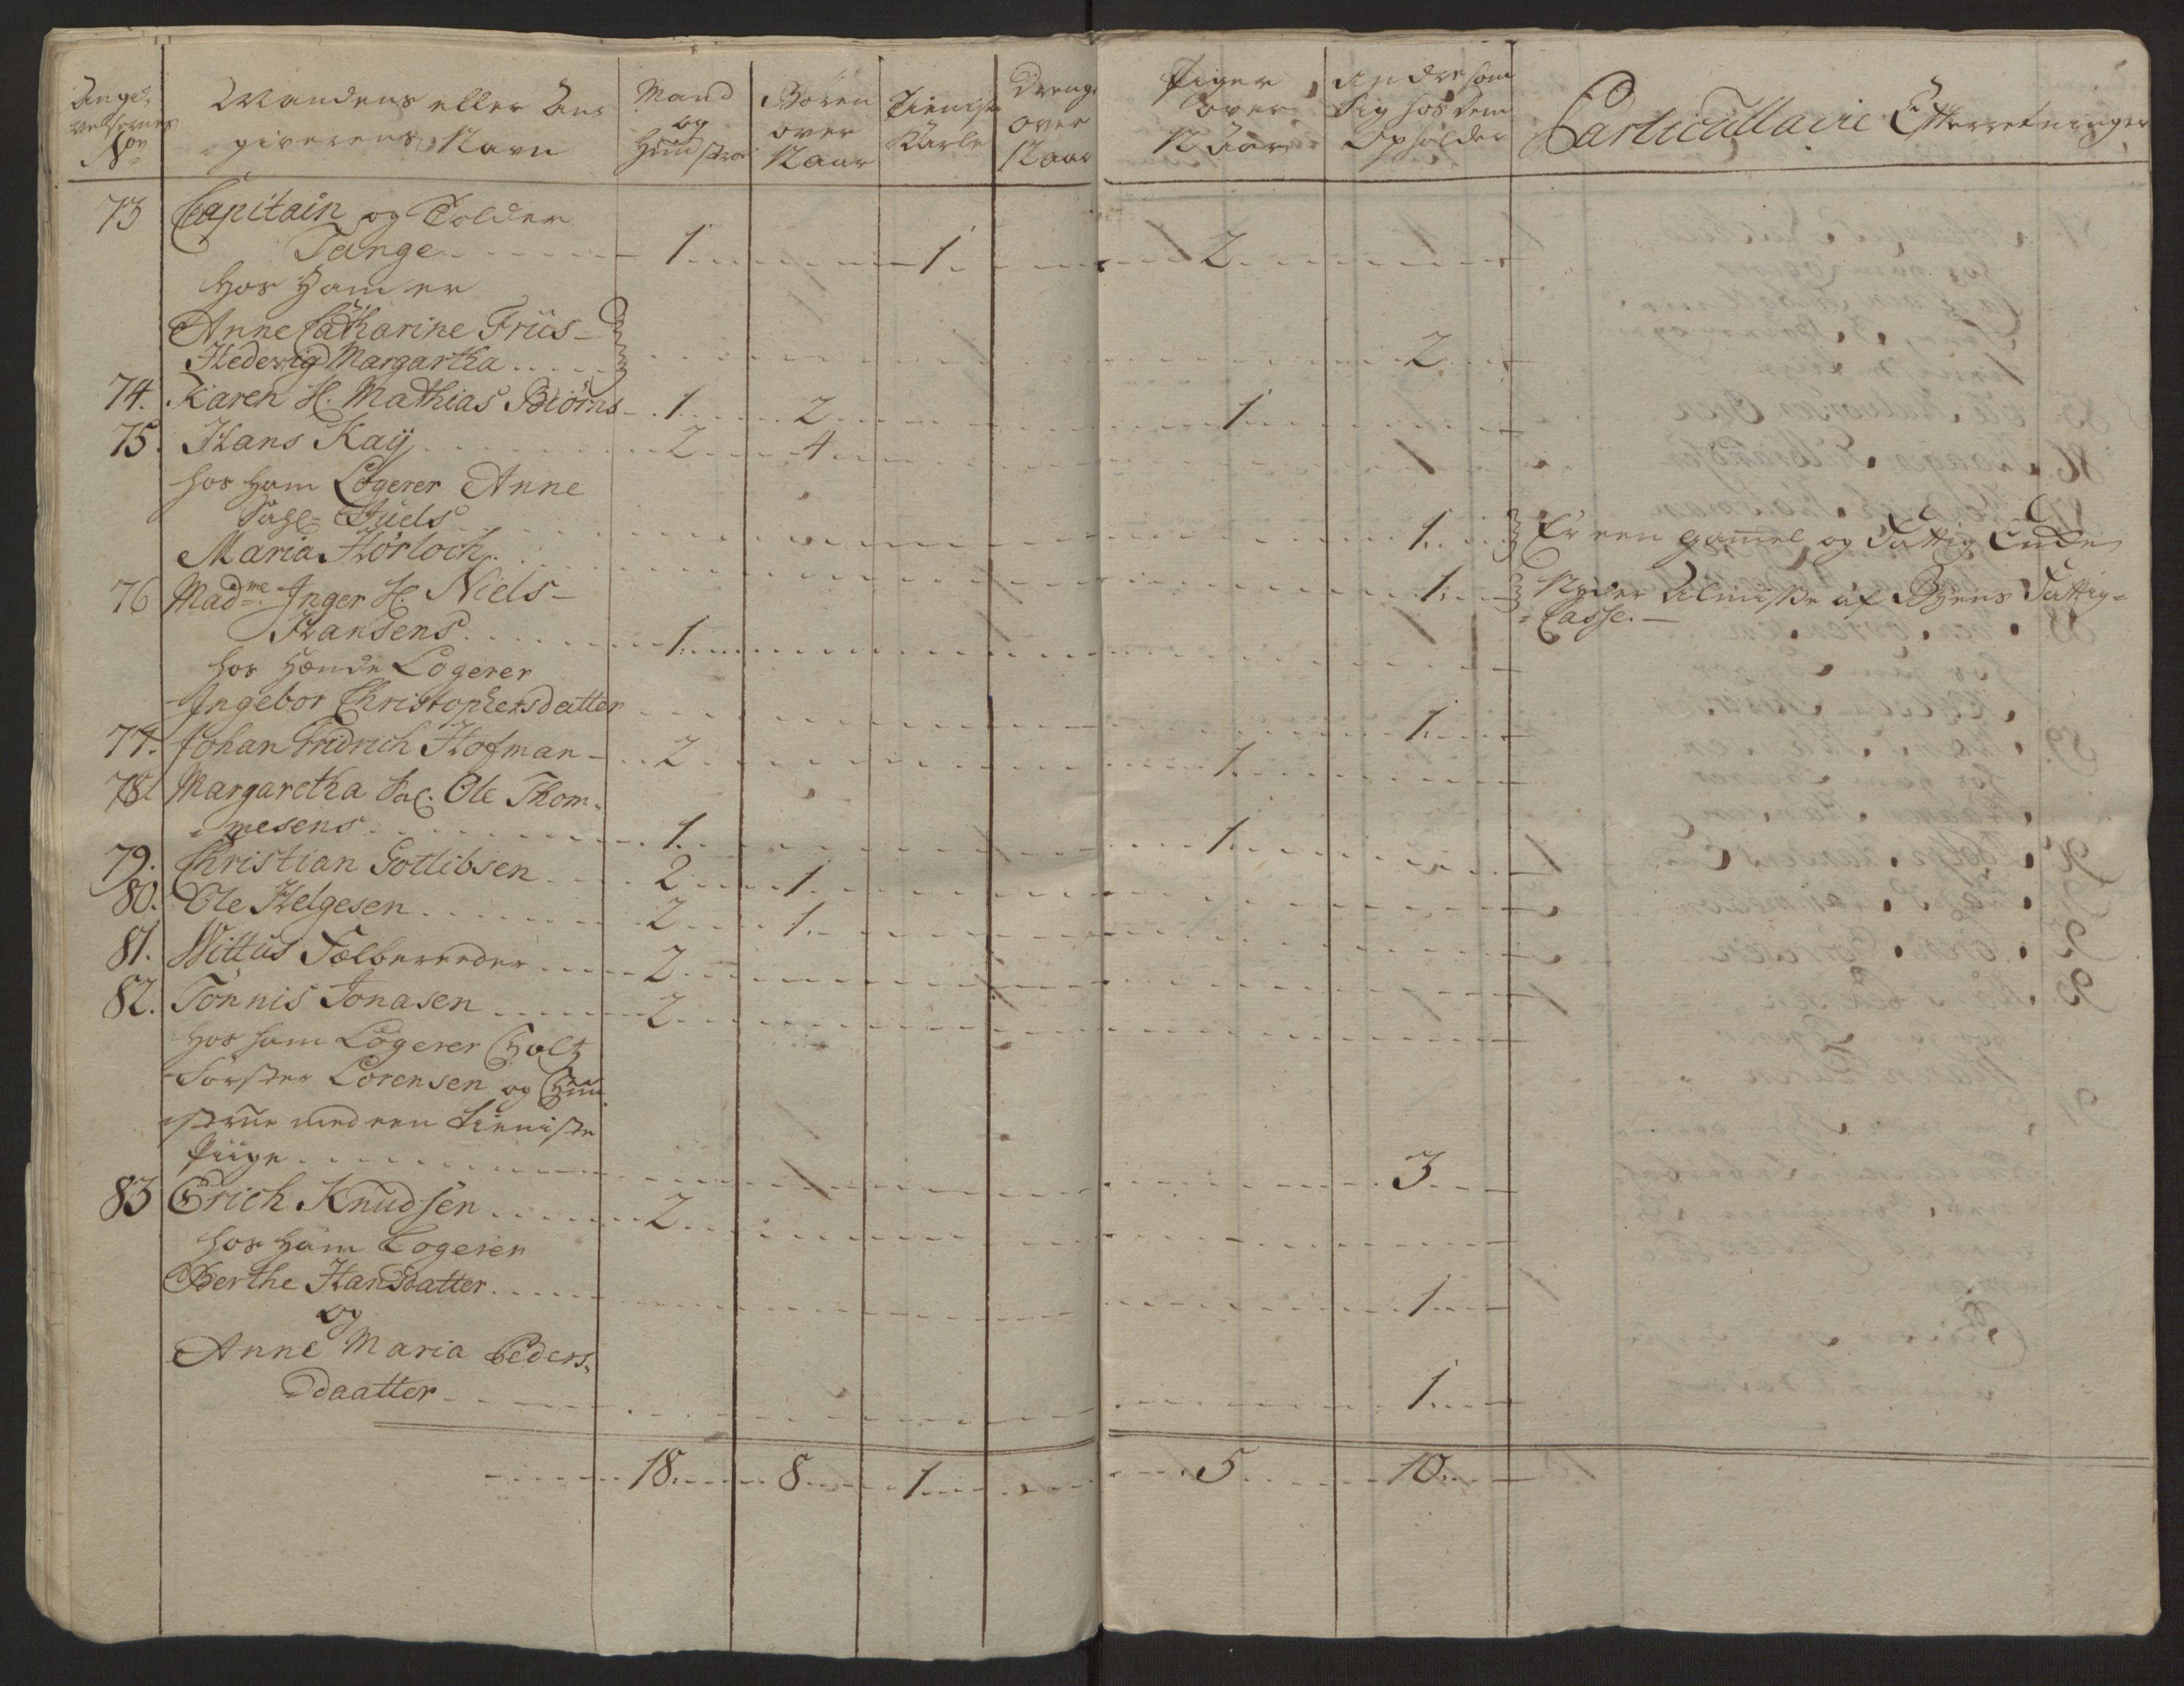 Angi-
velsernes
Nor
Mandens eller An-
giverens Navn
Mand
og
Hustroe
Börn
over
12 aar
Tieniste
Karle
Drenge
over
12 aar
Piger
over
12 Aar
Andre som
sig hos dem
Opholder
Particullaire Efterretninger
73 Capitain og Tolder
Tange 1 1 2
hos ham er
Anne Catharine Friis
Hedevig Margartha 2
74. Karen Sl. Mathias Biörns 1 2 1
75. Hans Kaÿ 2 4
hos ham Logerer Anne
Sahl. Juels 1 Er een gamel og Fattig Enke
Maria Hörloch 1 Nyder Almisse af Byens Fattig-
Casse.
76 Madme Inger Sl. Niels
Hansens 1
hos hende Logerer
Ingebor Christophersdatter 1
77. Johan Fridrich Hofman 2 1
78. Margaretha Sal. Ole Thom-
mesens 1 1
79. Christian Gotlibsen 2 1
80. Ole Helgesen 2 1
81. Wittus Fælbereeder 2
82. Tönnis Jonasen 2
hos ham Logerer Holtz
Förster Lorensen og Huu-
strue med een tieniste
Piige 3
83 Erich Knudsen 2
hos ham Logerer
Berthe Hansdatter 1
og
Anne Maria Peders-
daatter 1
18 8 1 5 10